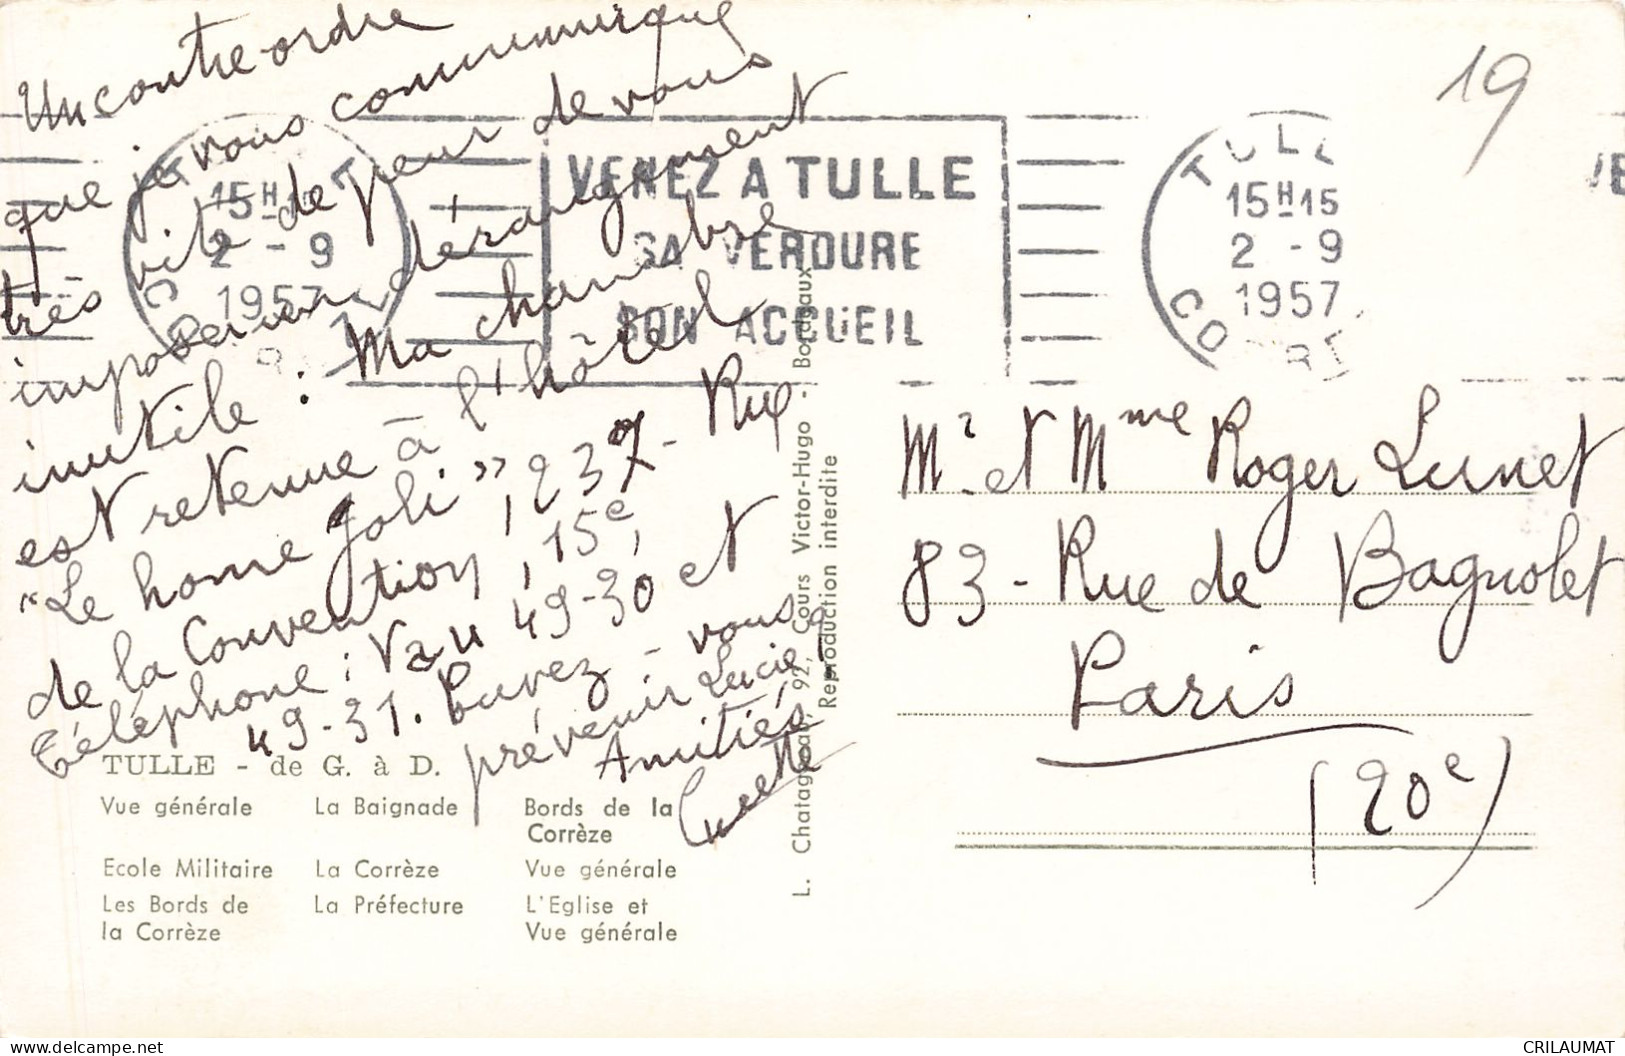 Un contre-ordre
que je vous communique
très vite de peur de vous
imposer un dérangement
inutile : Ma chambre
est retenue à l'hôtel
"Le home Joli", 237 - Rue
de la Convention, 15e,
Téléphone : Vau 49-30 et
49-31. Pouvez-vous
prévenir Lucie ?
Amitiés
TULLE - de G. à D.
Vue générale La Baignade Bords de la Corrèze
Ecole Militaire La Corrèze Vue générale
Les Bords de la Corrèze La Préfecture L'Eglise et Vue générale
L. Chatagneau, 92, Cours Victor-Hugo - Bordeaux
Reproduction interdite
15H
2 - 9
1957
VENEZ A TULLE
SA VERDURE
BON ACCUEIL
TULLE
15H15
2 - 9
1957
CORREZE
19
Mr et Mme Roger Lunet
83 - Rue de Bagnolet
Paris
(20e)
CRILAUMAT